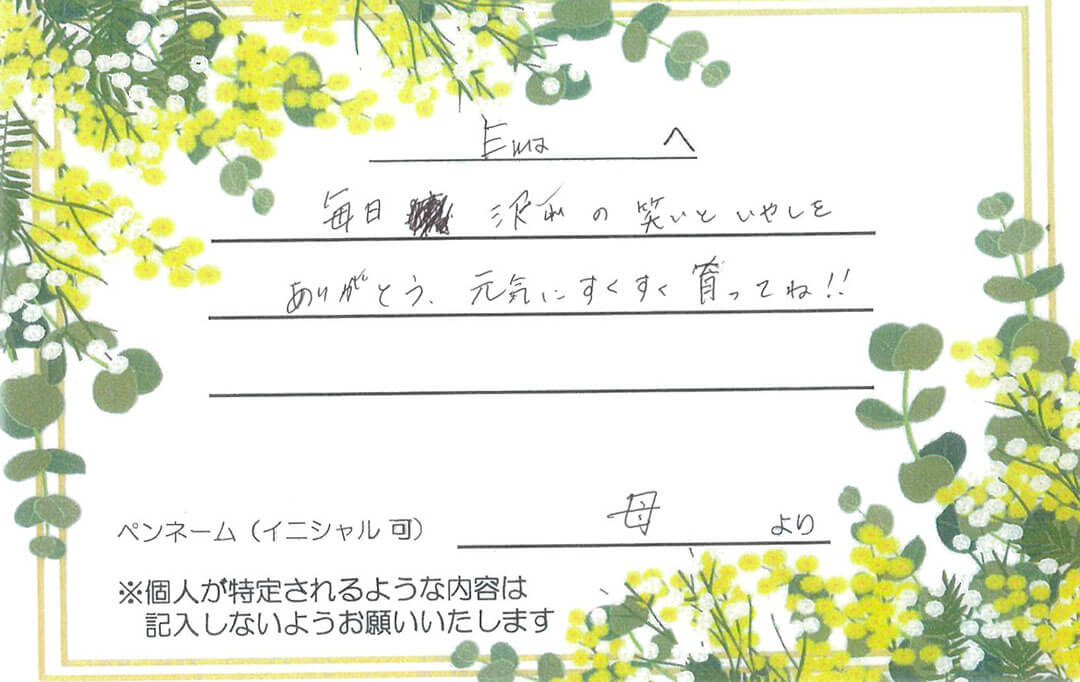 Ema へ
毎日 沢山の笑いといやしを
ありがとう、元気にすくすく育ってね!!
ペンネーム（イニシャル可） 母 より
※個人が特定されるような内容は
記入しないようお願いいたします